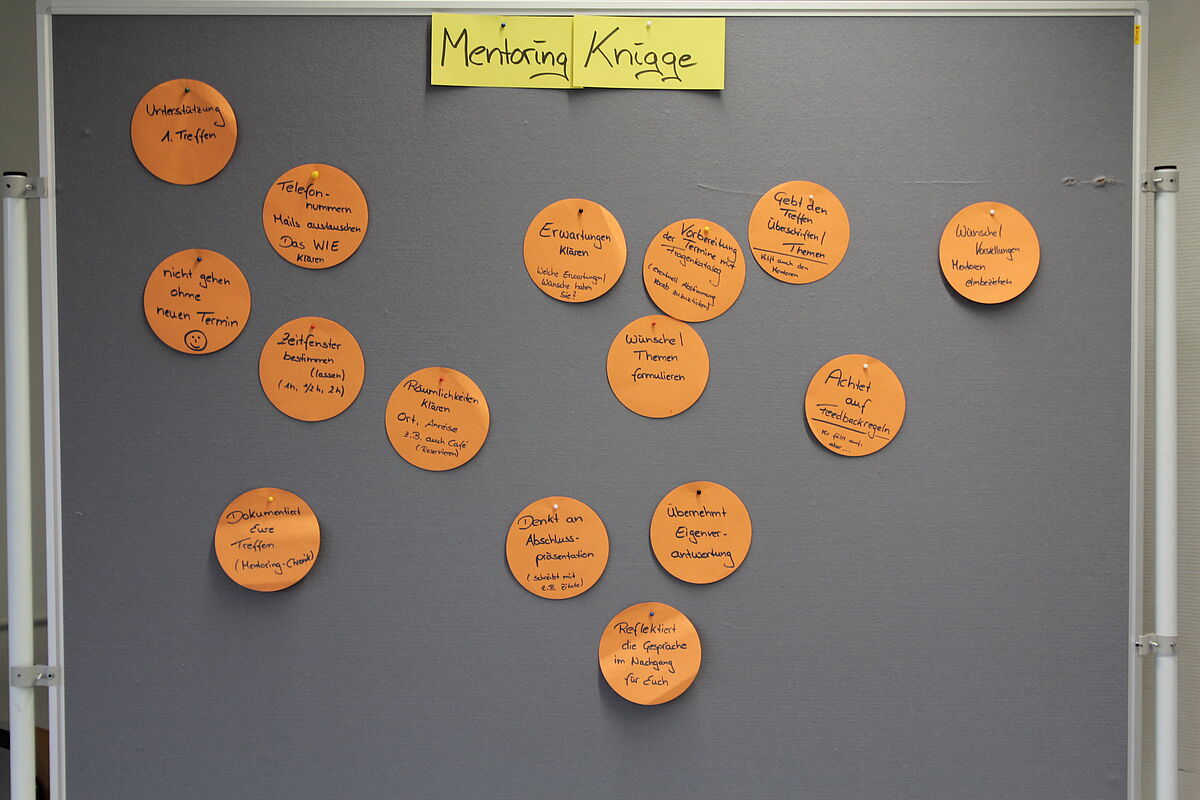 Mentoring Knigge
Unterstützung
1. Treffen
Telefon-
nummern
Mails austauschen
Das WIE
klären
nicht gehen
ohne
neuen Termin
Zeitfenster
bestimmen
(lassen)
(1h, 1/2h, 2h)
Räumlichkeiten
klären
Ort, Anreise
z.B. auch Café
(Reservieren)
Dokumentiert
Eure
Treffen
(Mentoring-Chronik)
Erwartungen
klären
Welche Erwartungen/
Wünsche haben
Sie?
Vorbereitung
der Termine mit
Fragenkatalog
(eventuell Abstimmung
vorab zuschicken)
Gebt den
Treffen
Überschriften/
Themen
Hilft auch den
Mentoren
Wünsche/
Vorstellungen
Mentoren
einbeziehen
Wünsche/
Themen
formulieren
Achtet
auf
Feedbackregeln
Mir fällt auf,
aber...
Denkt an
Abschluss-
präsentation
(schreibt mit
z.B. Zitate)
Übernehmt
Eigenver-
antwortung
Reflektiert
die Gespräche
im Nachgang
für Euch